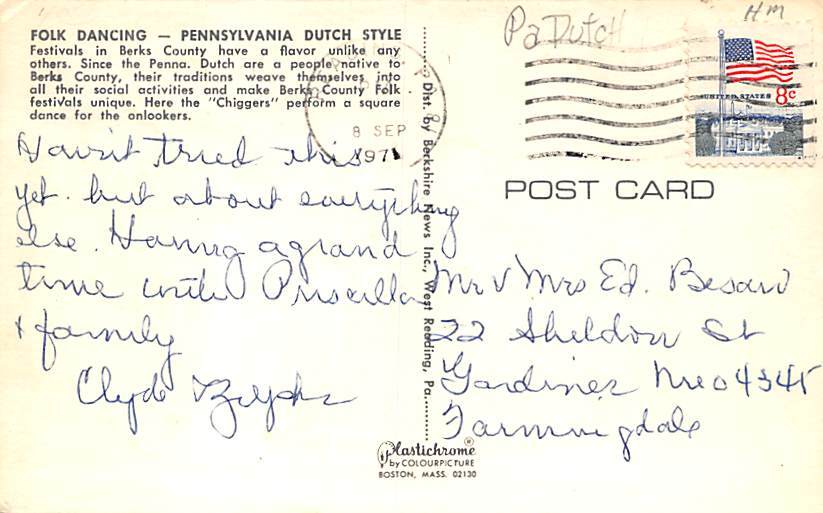 FOLK DANCING — PENNSYLVANIA DUTCH STYLE
Festivals in Berks County have a flavor unlike any
others. Since the Penna. Dutch are a people native to
Berks County, their traditions weave themselves into
all their social activities and make Berks County Folk
festivals unique. Here the "Chiggers" perform a square
dance for the onlookers.
Havn't tried this
yet. but about everything
else. Having a grand
time with Priscilla
& family
Clyde
Dist. by Berkshire News Inc., West Reading, Pa.
Pa Dutch
HM
8 SEP
1971
UNITED STATES 8c
POST CARD
Mr & Mrs Ed. Besaw
22 Sheldon St
Gardiner Me 04345
Farmingdale
Plastichrome®
by COLOURPICTURE
BOSTON, MASS. 02130